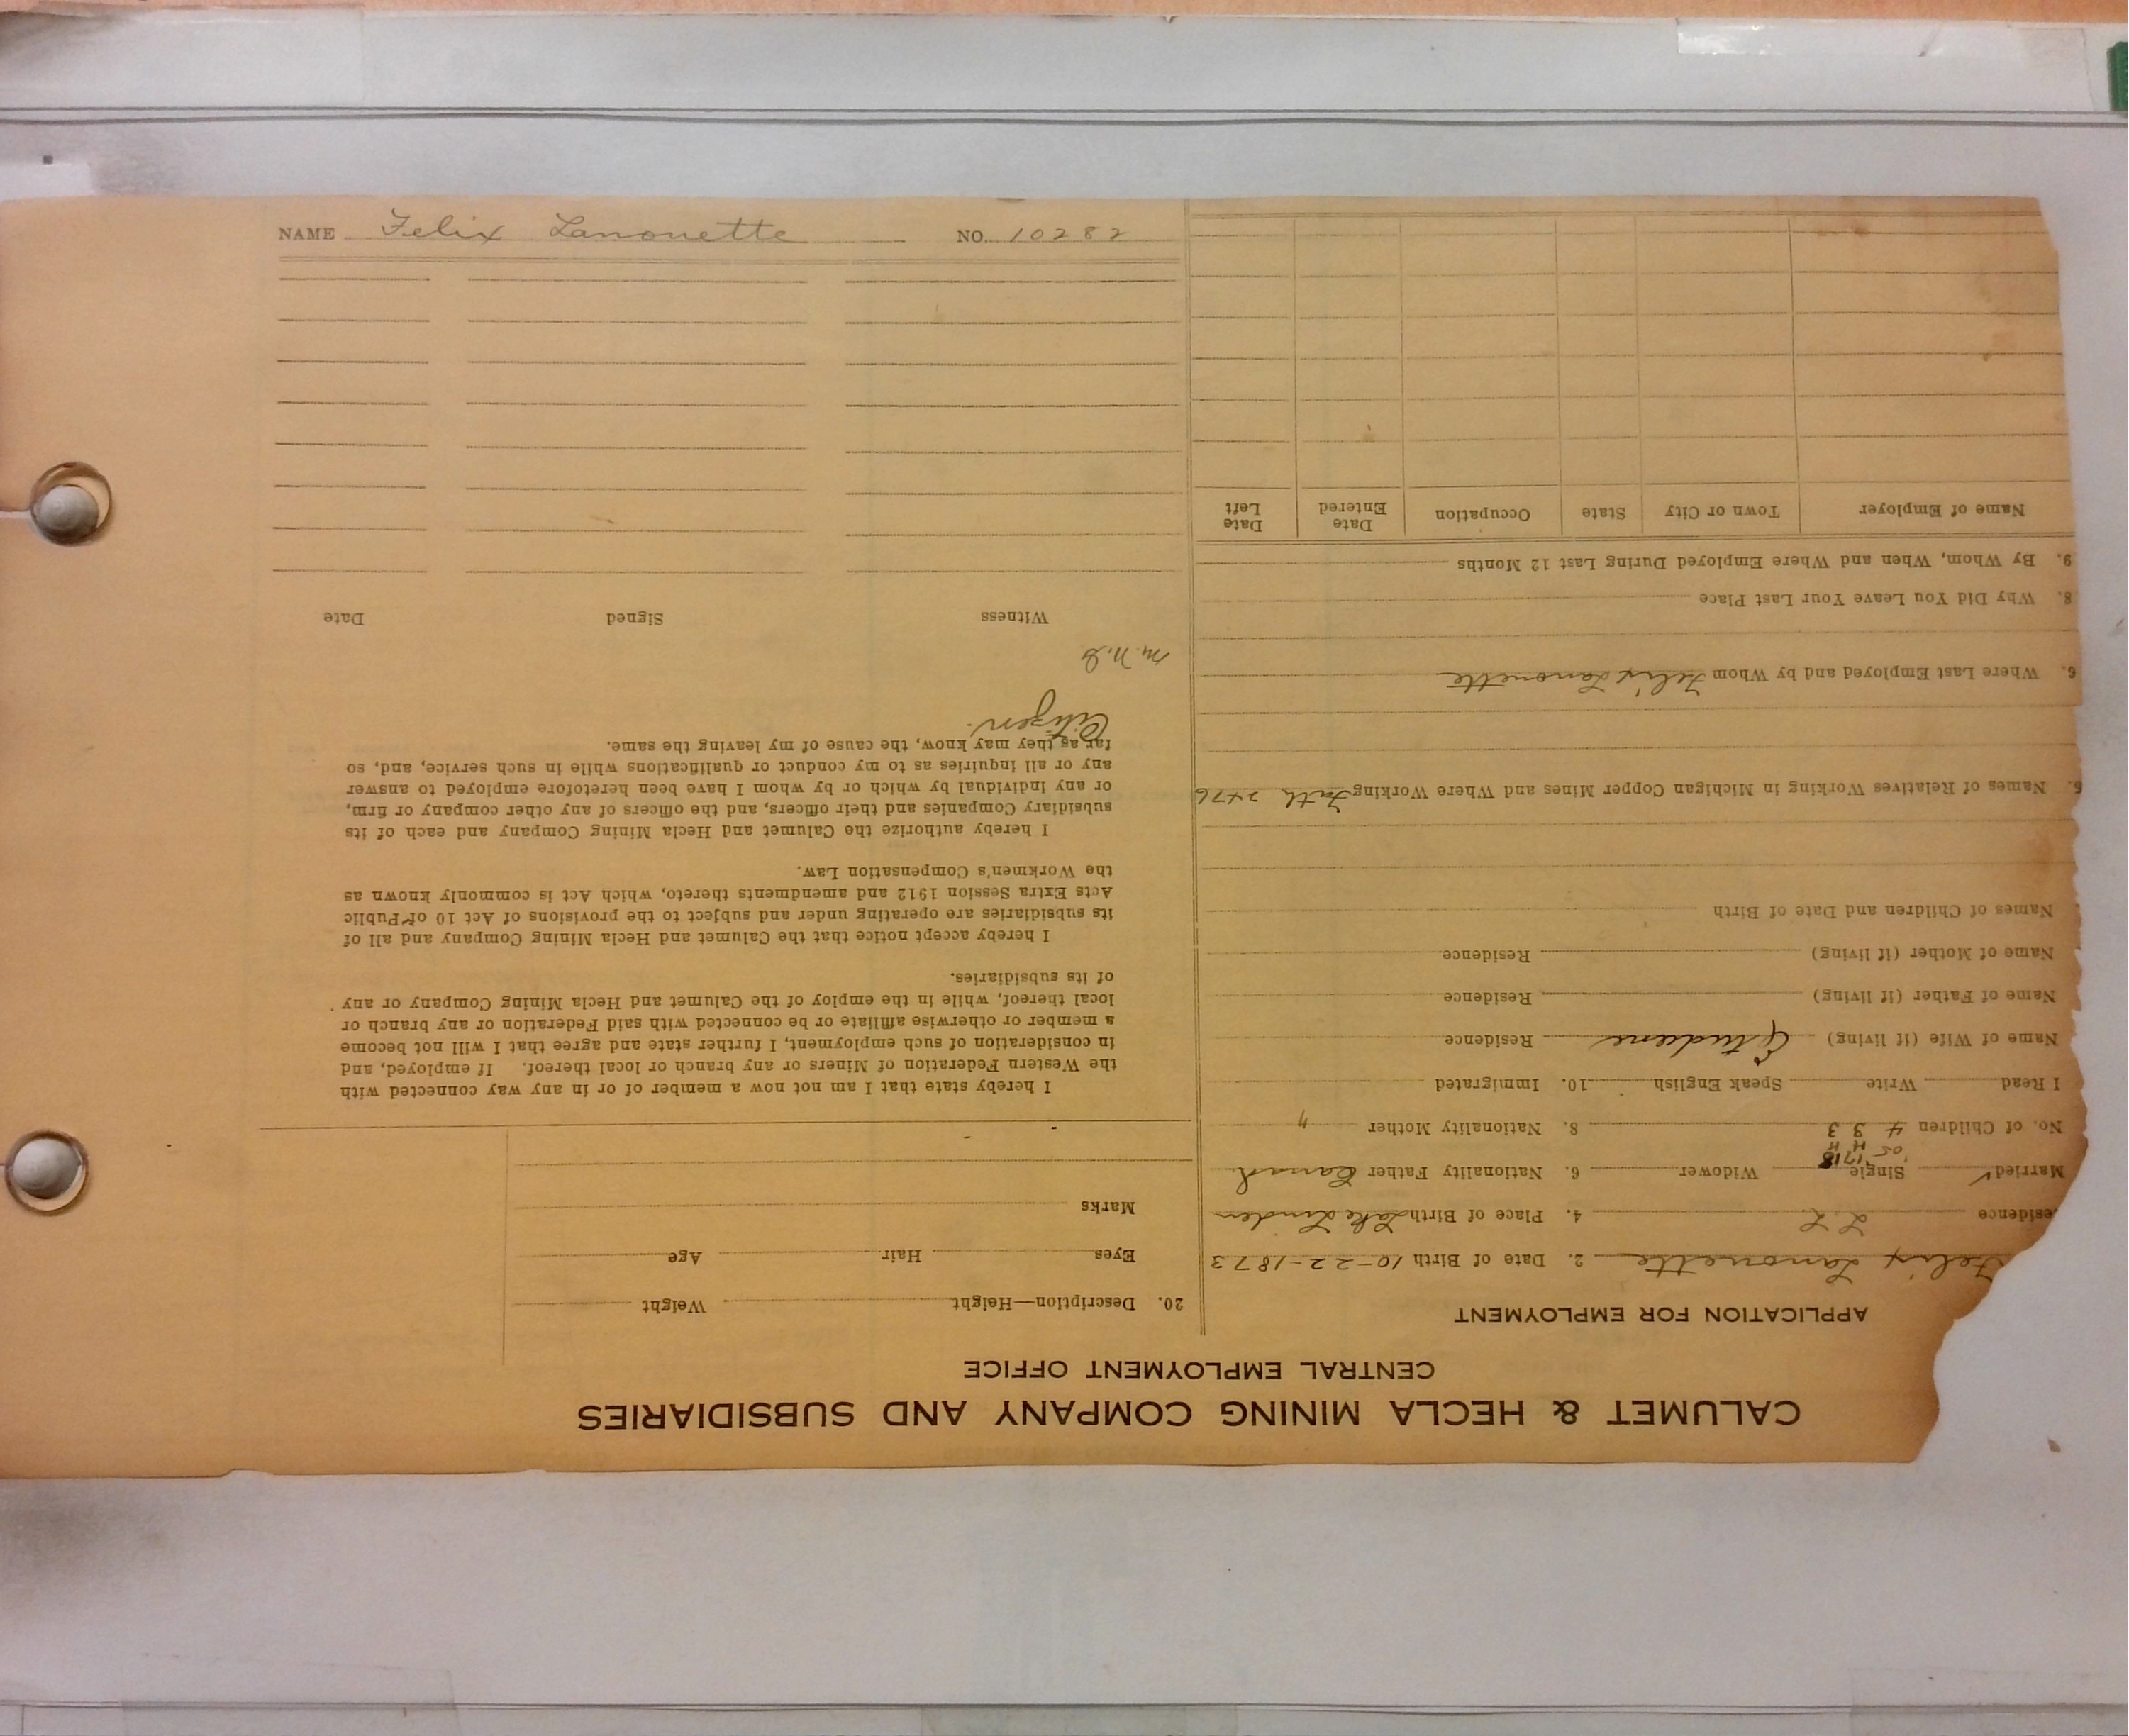 CALUMET & HECLA MINING COMPANY AND SUBSIDIARIES
CENTRAL EMPLOYMENT OFFICE
APPLICATION FOR EMPLOYMENT
Felix Lanouette 2. Date of Birth 10-22-1873
esidence L. L. 4. Place of Birth Lake Linden
Married ✓ Single Widower 6. Nationality Father Canad
No. of Children 4 3 3 8. Nationality Mother "
I Read Write Speak English 10. Immigrated
Name of Wife (if living) Residence
Name of Father (if living) Residence
Name of Mother (if living) Residence
Names of Children and Date of Birth
Names of Relatives Working in Michigan Copper Mines and Where Working 2476
6. Where Last Employed and by Whom Felix Lanouette
8. Why Did You Leave Your Last Place
9. By Whom, When and Where Employed During Last 12 Months
Name of Employer Town or City State Occupation Date Entered Date Left
20. Description—Height Weight
Eyes Hair Age
Marks
I hereby state that I am not now a member of or in any way connected with
the Western Federation of Miners or any branch or local thereof. If employed, and
in consideration of such employment, I further state and agree that I will not become
a member or otherwise affiliate or be connected with said Federation or any branch or
local thereof, while in the employ of the Calumet and Hecla Mining Company or any
of its subsidiaries.
I hereby accept notice that the Calumet and Hecla Mining Company and all of
its subsidiaries are operating under and subject to the provisions of Act 10 of Public
Acts Extra Session 1912 and amendments thereto, which Act is commonly known as
the Workmen's Compensation Law.
I hereby authorize the Calumet and Hecla Mining Company and each of its
subsidiary Companies and their officers, and the officers of any other company or firm,
or any individual by which or by whom I have been heretofore employed to answer
any or all inquiries as to my conduct or qualifications while in such service, and, so
far as they may know, the cause of my leaving the same.
Citizen.
Witness Signed Date
NAME Felix Lanouette NO. 10282